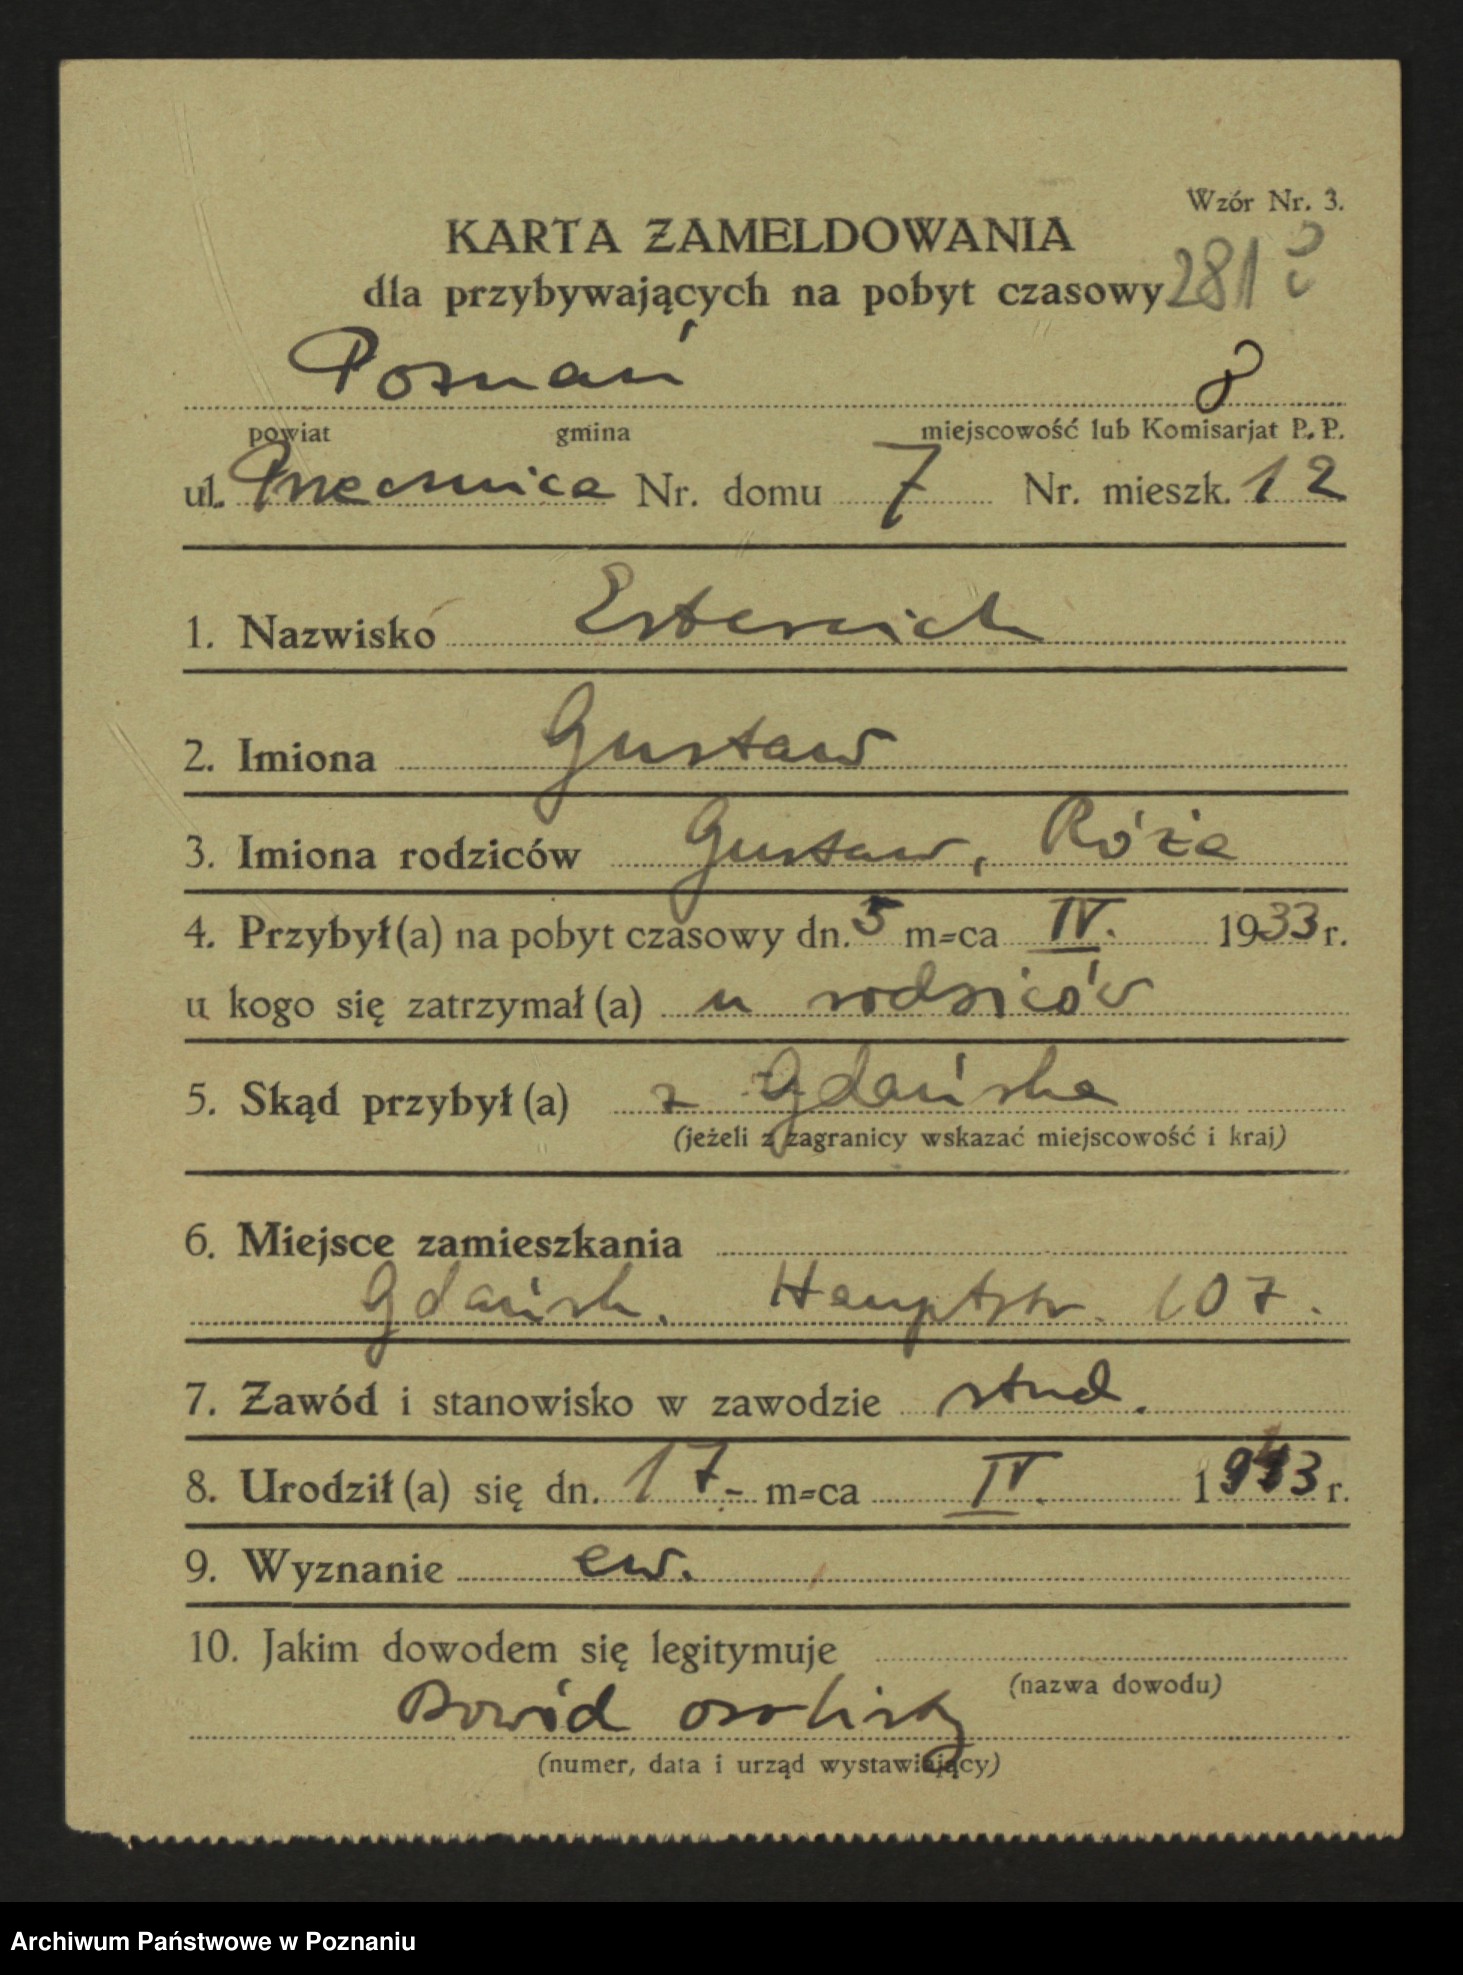 Wzór Nr. 3.
KARTA ZAMELDOWANIA
dla przybywających na pobyt czasowy 281
Poznań 8
powiat gmina miejscowość lub Komisarjat P. P.
ul. Przecznica Nr. domu 7 Nr. mieszk. 12
1. Nazwisko Estereich
2. Imiona Gustaw
3. Imiona rodziców Gustaw, Róża
4. Przybył(a) na pobyt czasowy dn. 5 m-ca IV. 1933 r.
u kogo się zatrzymał(a) u rodziców
5. Skąd przybył(a) z Gdańska
(jeżeli z zagranicy wskazać miejscowość i kraj)
6. Miejsce zamieszkania
Gdańsk. Hauptstr. 107.
7. Zawód i stanowisko w zawodzie stud.
8. Urodził(a) się dn. 17- m-ca IV. 1913 r.
9. Wyznanie ew.
10. Jakim dowodem się legitymuje
(nazwa dowodu)
Dowód osobisty
(numer, data i urząd wystawiający)
Archiwum Państwowe w Poznaniu